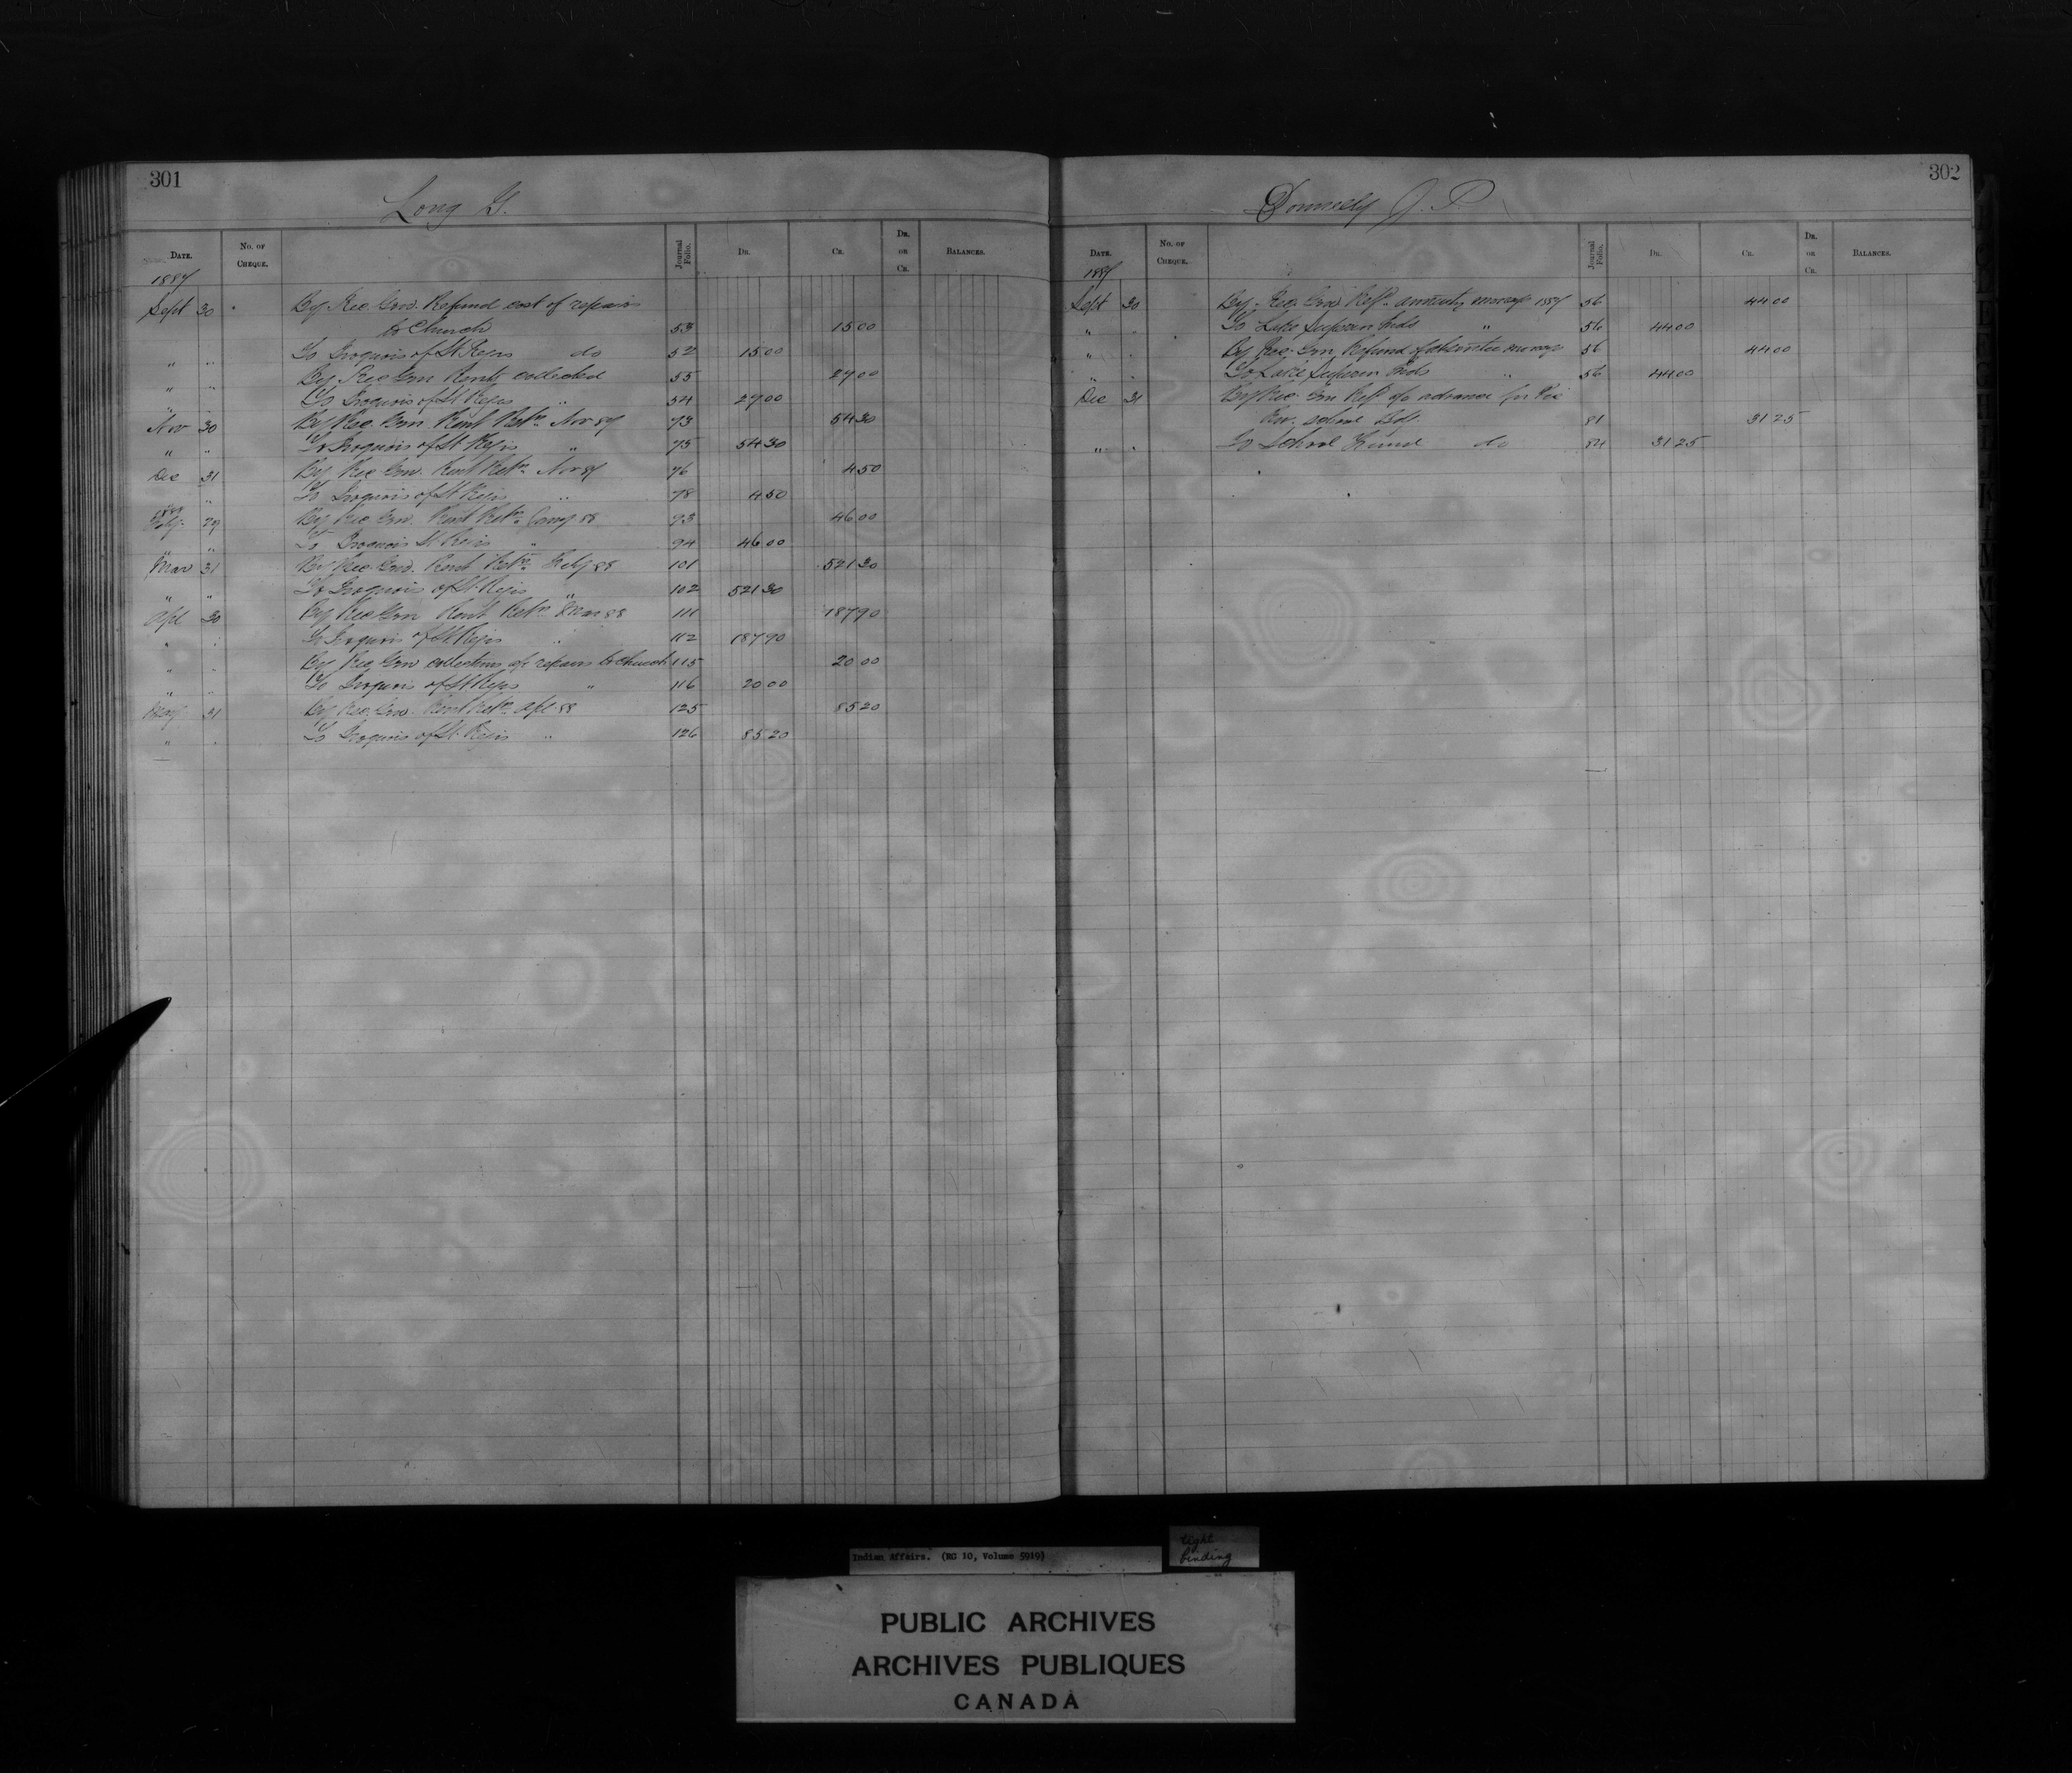 301
Long G.
DATE.
No. OF CHEQUE.
Journal Folio.
DR.
CR.
DR. or CR.
BALANCES.
1887
Sept 30 By Rec. Gen. Refund cost of repairs
to Church 53 15 00
" " To Iroquois of St Regis do 52 15 00
" " By Rec Gen Rents collected 55 27 00
" " To Iroquois of St Regis " 54 27 00
Nov 30 By Rec. Gen. Rent Retn Nov 87 73 54 30
" " To Iroquois of St Regis " 75 54 30
Dec 31 By Rec Gen. Rent Retn Nov 87 76 4 50
" To Iroquois of St Regis " 78 4 50
29 By Rec Gen. Rent Retn 88 93 46 00
" " To Iroquois St Regis " 94 46 00
Mar 31 By Rec. Gen. Rent Retn Feby 88 101 521 30
" " To Iroquois of St Regis " 102 521 30
Apl 30 By Rec Gen Rent Retn Mar 88 111 187 90
" " To Iroquois of St Regis " 112 187 90
" " By Rec Gen collections a/c repairs to Church 115 20 00
" " To Iroquois of St Regis " 116 20 00
May 31 By Rec. Gen. Rent Retn Apl 88 125 85 20
" " To Iroquois of St Regis " 126 85 20
302
Donnelly J. P.
DATE.
No. OF CHEQUE.
Journal Folio.
DR.
CR.
DR. or CR.
BALANCES.
1887
Sept 30 By Rec. Gen. Refd annuity money 1887 56 44 00
" " To Lake Superior Inds " 56 44 00
" " By Rec. Gen Refund of absentee money 56 44 00
" " To Lake Superior Inds " 56 44 00
Dec 31 By Rec. Gen Refd a/c advance for Pic
Riv. school 81 31 25
" " To School Fund do 84 31 25
Indian Affairs. (RG 10, Volume 5919)
tight
binding
PUBLIC ARCHIVES
ARCHIVES PUBLIQUES
CANADA